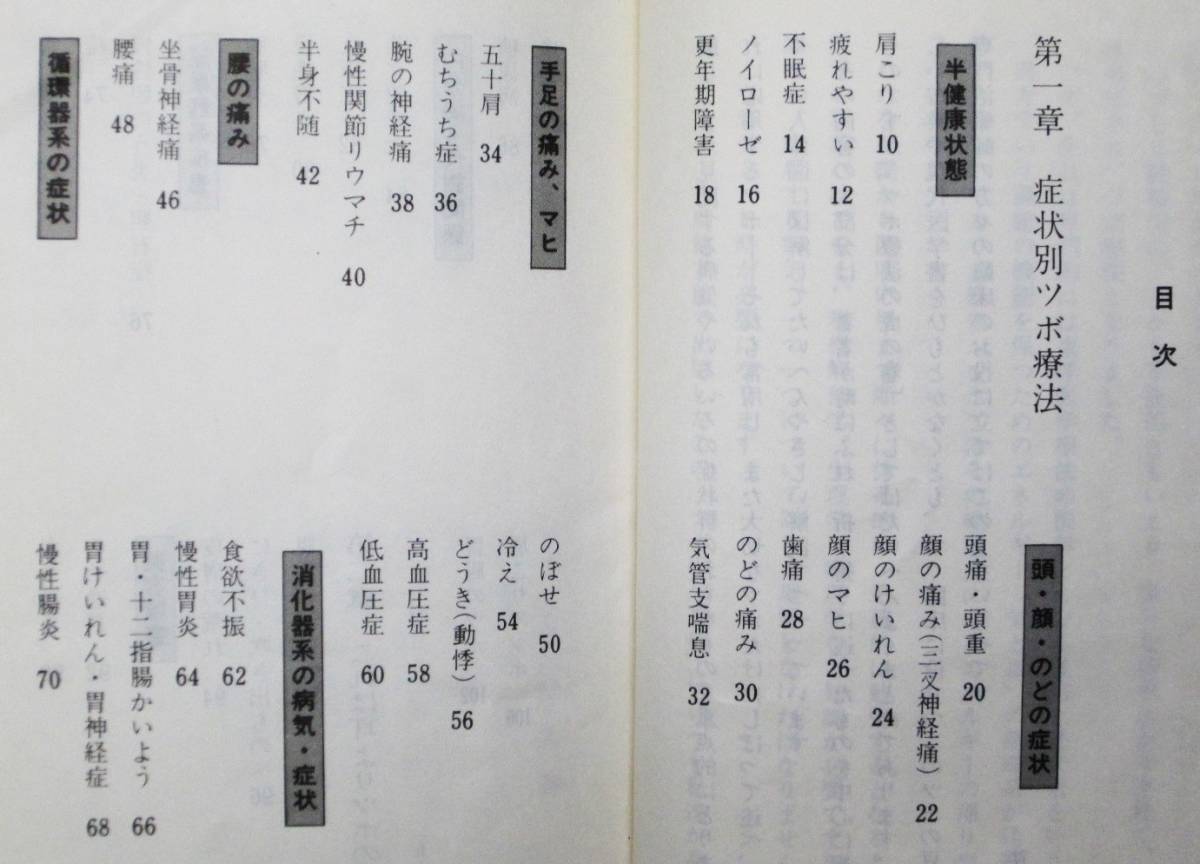 目次
第一章 症状別ツボ療法
半健康状態
肩こり 10
疲れやすい 12
不眠症 14
ノイローゼ 16
更年期障害 18
頭・顔・のどの症状
頭痛・頭重 20
顔の痛み(三叉神経痛) 22
顔のけいれん 24
顔のマヒ 26
歯痛 28
のどの痛み 30
気管支喘息 32
手足の痛み、マヒ
五十肩 34
むちうち症 36
腕の神経痛 38
慢性関節リウマチ 40
半身不随 42
腰の痛み
坐骨神経痛 46
腰痛 48
循環器系の症状
のぼせ 50
冷え 54
どうき(動悸) 56
高血圧症 58
低血圧症 60
消化器系の病気・症状
食欲不振 62
慢性胃炎 64
胃・十二指腸かいよう 66
胃けいれん・胃神経症 68
慢性腸炎 70